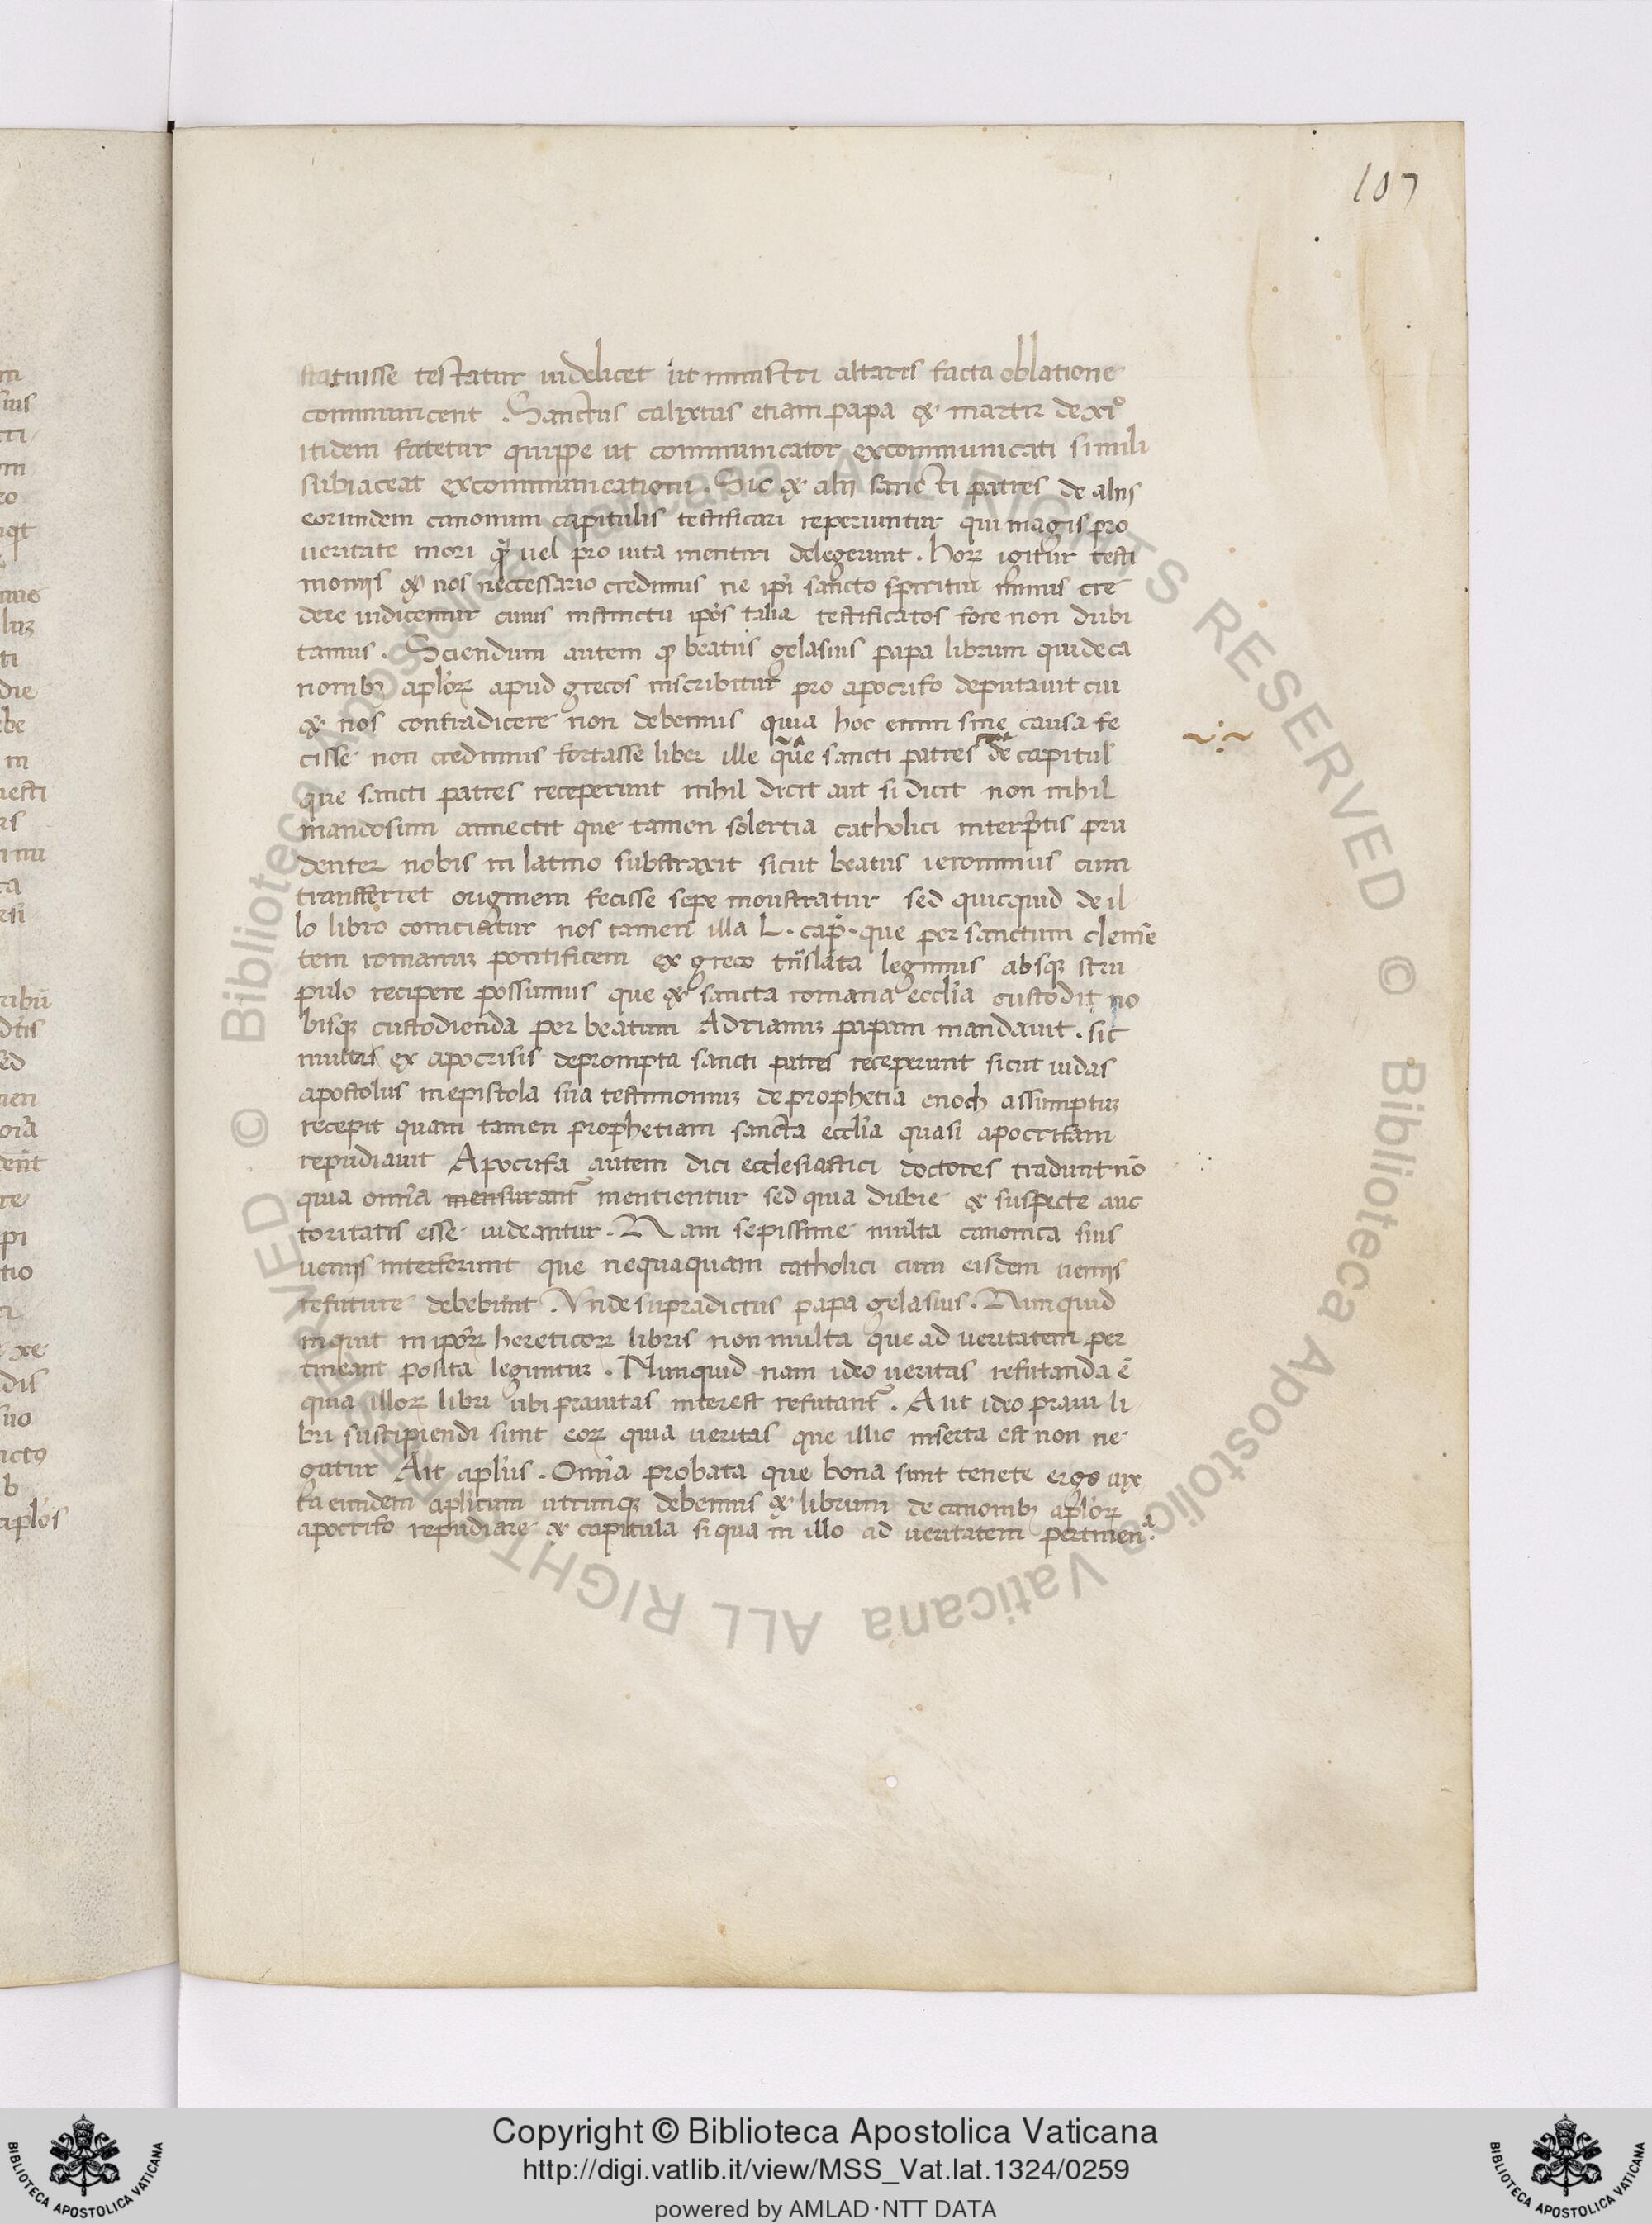 107
statuisse testatur uidelicet ut ministri altaris facta oblatione
communicent . Sanctus calixtus etiam papa & martir de xi°
itidem fatetur quippe ut communicator excommunicati simili
subiaceat excommunicationi . Sic & alii sancti patres de aliis
eorundem canonum capitulis testificari reperiuntur qui magis pro
ueritate mori quā uel pro uita mentiri delegerunt . horꝝ igitur testi
moniis & nos neccessario credimus ne ip̄i sancto spiritui minus cre
dere uidicemur cuius instinctu ip̄os talia testificatos fore non dubi
tamus . Sciendum autem ꝙ beatus gelasius papa librum qui de ca
nonibꝫ apl̄orꝝ apud grecos inscribitur pro apocrifo deputauit cui
& nos contradicere non debemus quia hoc enim sine causa fe
cisse non credimus fortasse liber ille sancti patres de capitul̄
que sancti patres receperunt nihil dicit aut si dicit non nihil
mandosum annectit que tamen solertia catholici interp̄tis pru
denter nobis in latino substraxit sicut beatus ieronimus cum
transferret originem fecisse sepe monstratur sed quicquid de il
lo libro coniciatur nos tamen illa L . cap̄ . que per sanctum clemē
tem romanuꝫ pontificem ex greco trāslata legimus absqꝫ scru
pulo recipere possumus que & sancta romana eccl̄ia custodit no
bisqꝫ custodienda per beatum Adrianuꝫ papam mandauit . sic
multas ex apocrisis deprompta sancti patres receperunt sicut iudas
apostolus in epistola sua testimoniuꝫ de prophetia enoch assumptuꝫ
recepit quam tamen prophetiam sancta eccl̄ia quasi apocrifam
repudiauit Apocrifa autem dici ecclesiastici doctores tradunt nō
quia om̄ia mensurant mentientur sed quia dubie & suspecte auc
toritatis esse uideantur . Nam sepissime multa canonica suis
ueniis interferunt que nequaquam catholici cum eisdem ueniis
refutare debebunt . Vnde supradictus papa gelasius . Numquid
inquit in ip̄orꝝ hereticorꝝ libris non multa que ad ueritatem per
tineant posita leguntur . Nunquid nam ideo ueritas refutanda ē
quia illorꝝ libri ubi prauitas interest refutant̄ . Aut ideo praui li
bri suscipiendi sunt eorꝝ quia ueritas que illic inserta est non ne
gatur Ait apl̄us . Om̄ia probata que bona sunt tenete ergo iux
ta eundem apl̄icum utrunqꝫ debemus & librum de canonibꝫ apl̄orꝝ
apocrifo repudiare & capitula si qua in illo ad ueritatem pertinen
Copyright © Biblioteca Apostolica Vaticana
http://digi.vatlib.it/view/MSS_Vat.lat.1324/0259
powered by AMLAD·NTT DATA
BIBLIOTECA APOSTOLICA VATICANA
BIBLIOTECA APOSTOLICA VATICANA
© Biblioteca Apostolica Vaticana ALL RIGHTS RESERVED © Biblioteca Apostolica Vaticana ALL RIGHTS RESERVED